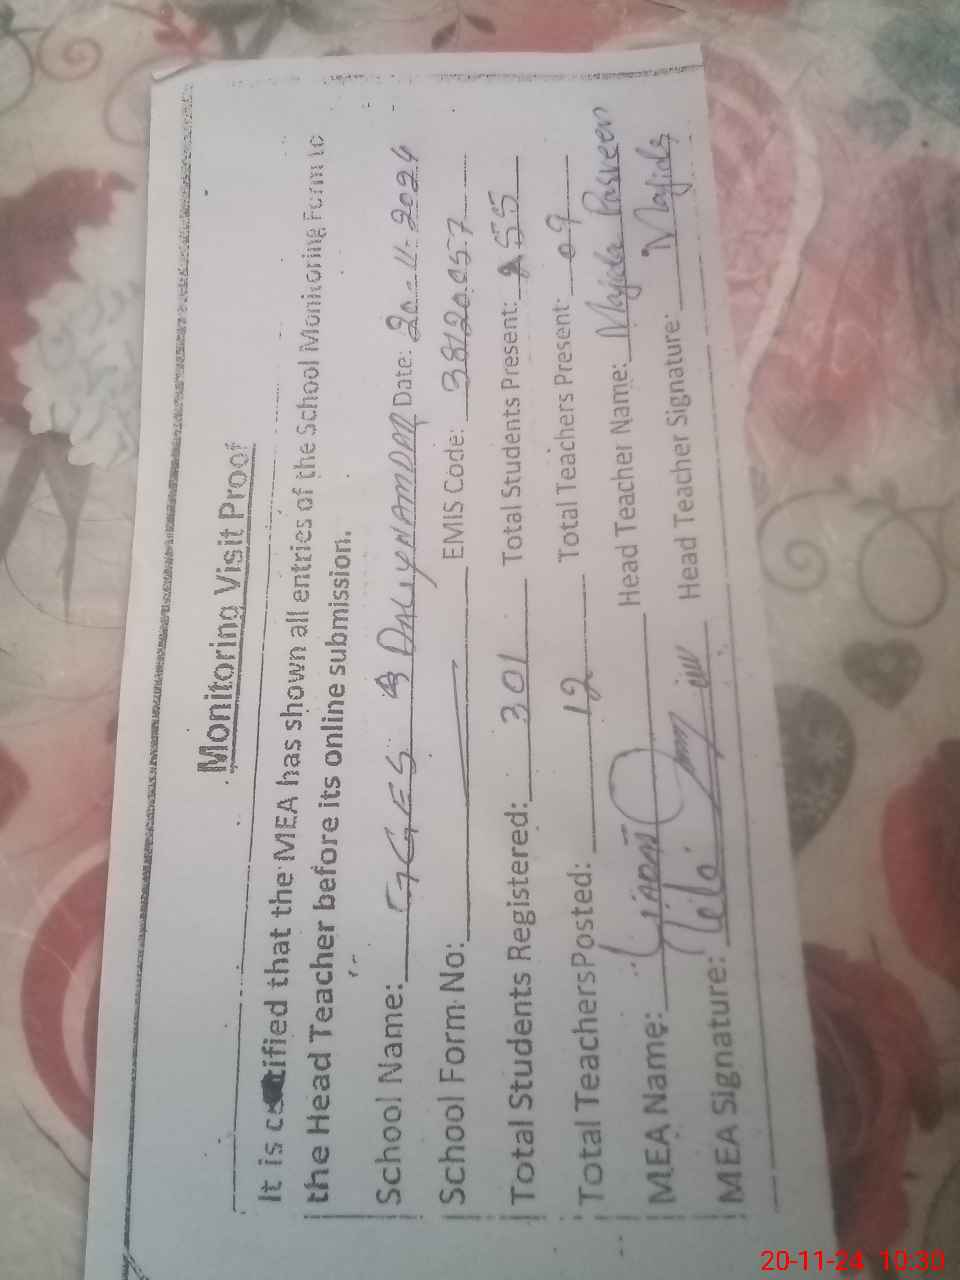 Monitoring Visit Proof
It is certified that the MEA has shown all entries of the School Monitoring Form to
the Head Teacher before its online submission.
School Name: GGES DALIYNAMDAR Date: 20-11-2024
School Form No: EMIS Code: 38120057
Total Students Registered: 301 Total Students Present: 255
Total Teachers Posted: 12 Total Teachers Present: 09
MEA Name: Head Teacher Name: Majida Parveen
MEA Signature: Head Teacher Signature: Majida
20-11-24 10:30